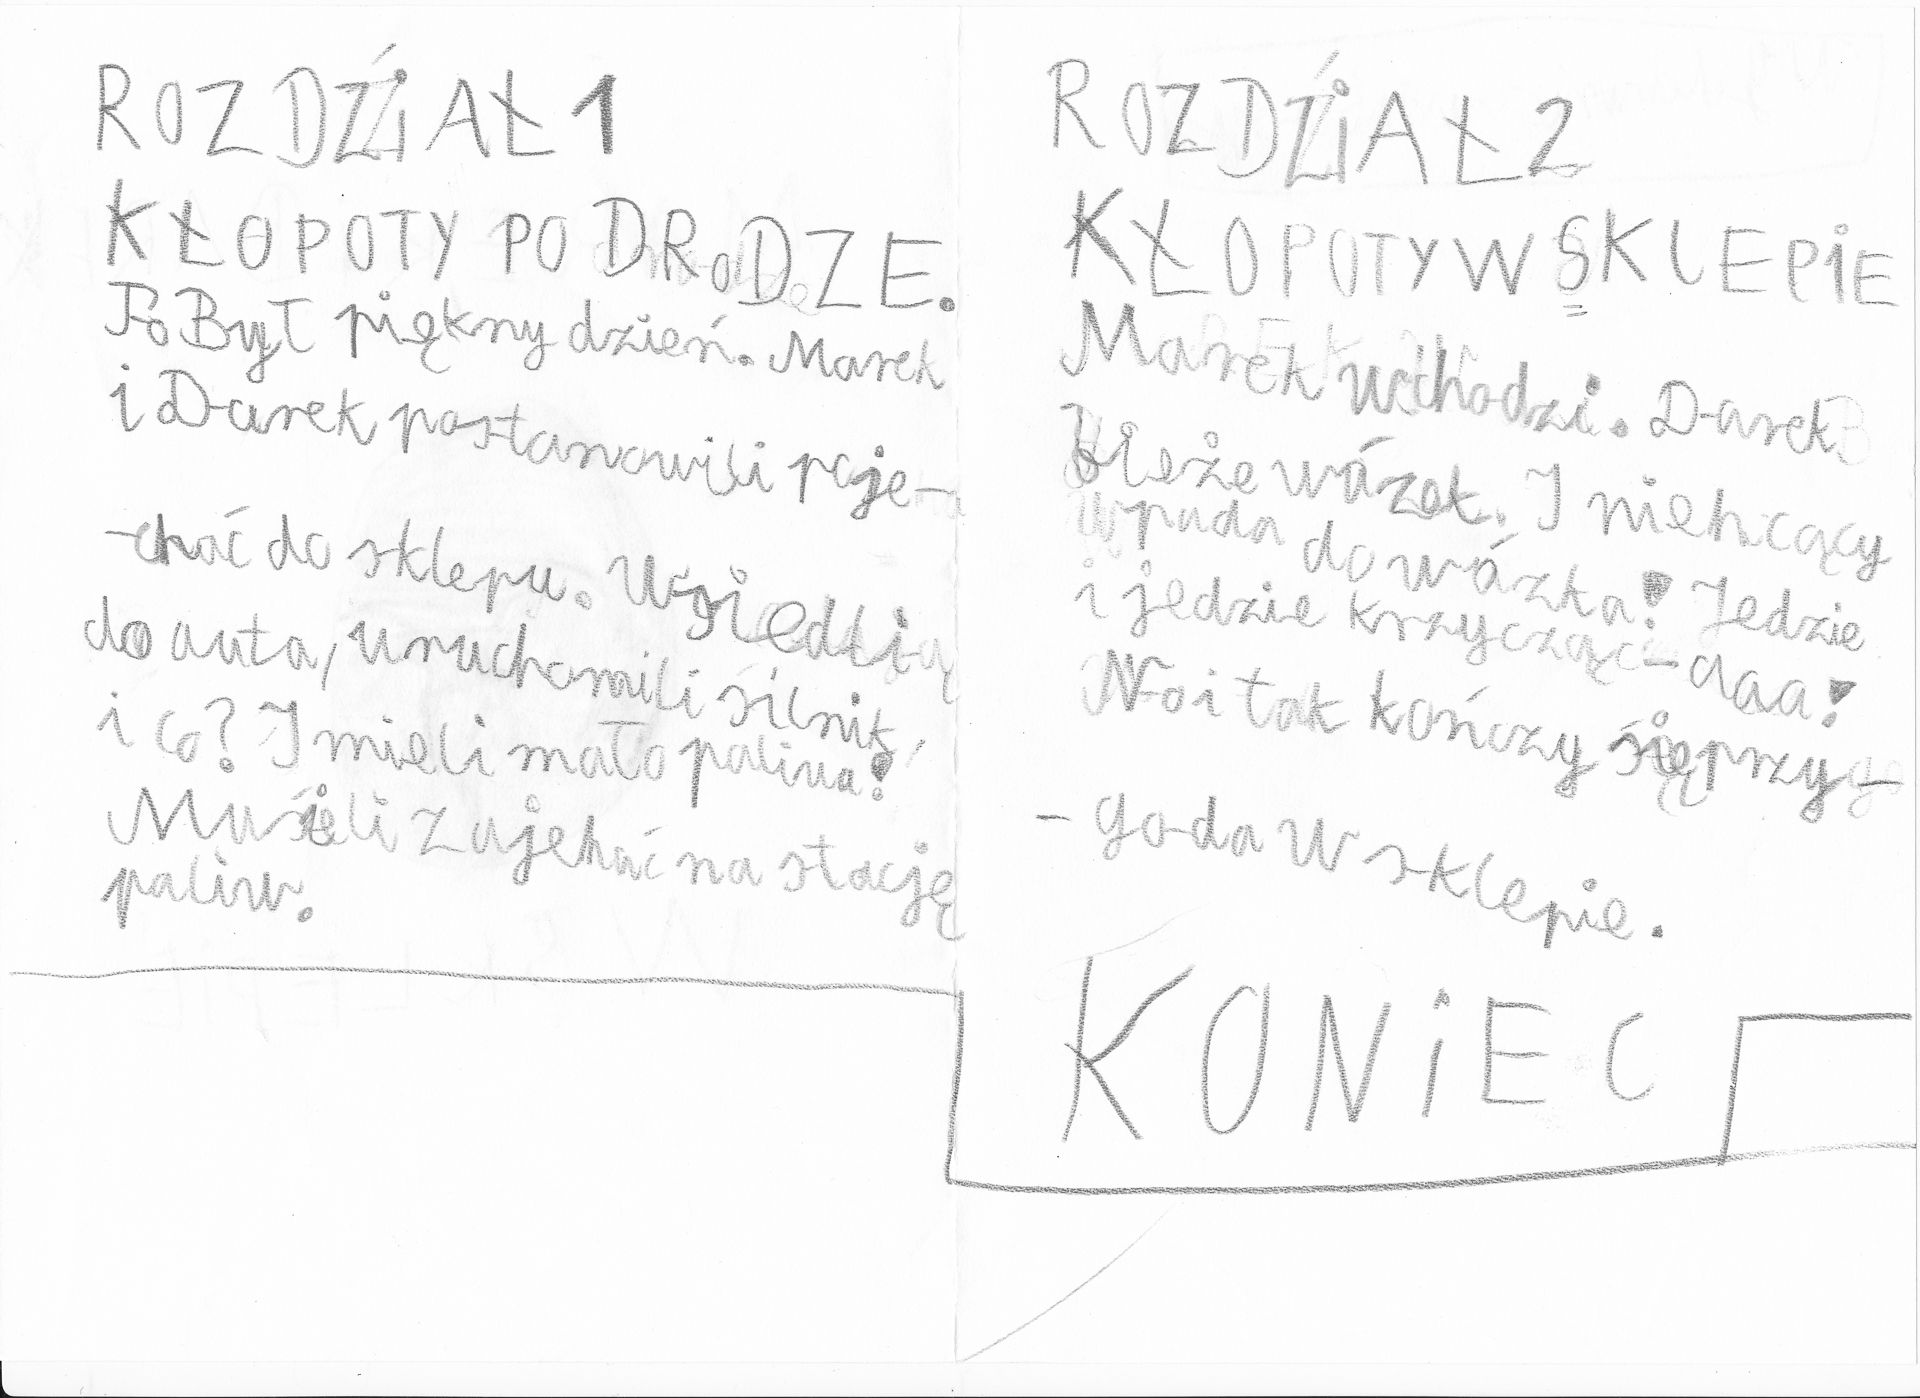 ROZDŹIAŁ 1
KŁOPOTY PO DRODZE.
Był piękny dzień. Marek
i Darek postanowili poje-
-chać do sklepu. Wsiedli
do auta, uruchomili śilnik,
i co? I mieli mało paliwa!
Musieli zajehać na stację
paliw.
ROZDŹIAŁ 2
KŁOPOTY W SKLEPIE
Marek wchodzi. Darek
bieże wázek. I niehcący
wpada do wázka! Jedzie
i jedzie krzycząc - daa!
No i tak kończy się przy-
- goda w sklepie.
KONIEC